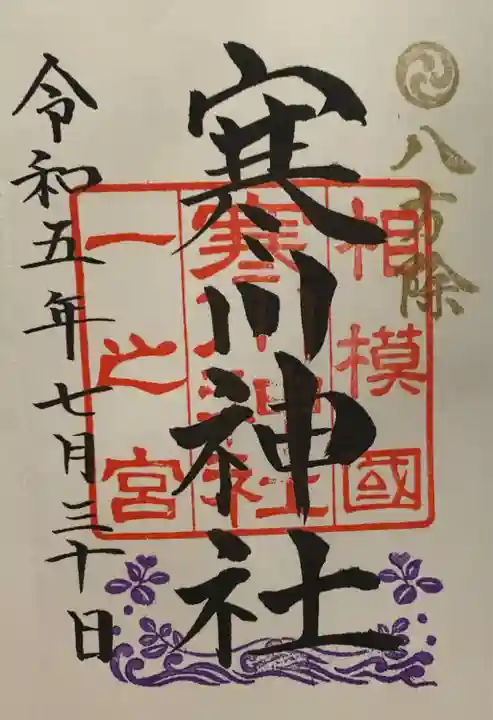 八方除
寒川神社
相模國
寒川神社
一之宮
令和五年七月三十日